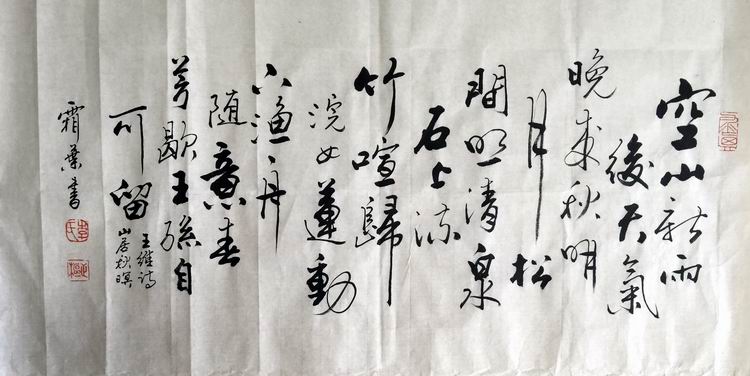 空山新雨
後天氣
晚来秋明
月松
間照清泉
石上流
竹喧歸
浣女蓮動
下漁舟
随意春
芳歇王孫自
可留
王維詩
山居秋暝
霜葉書